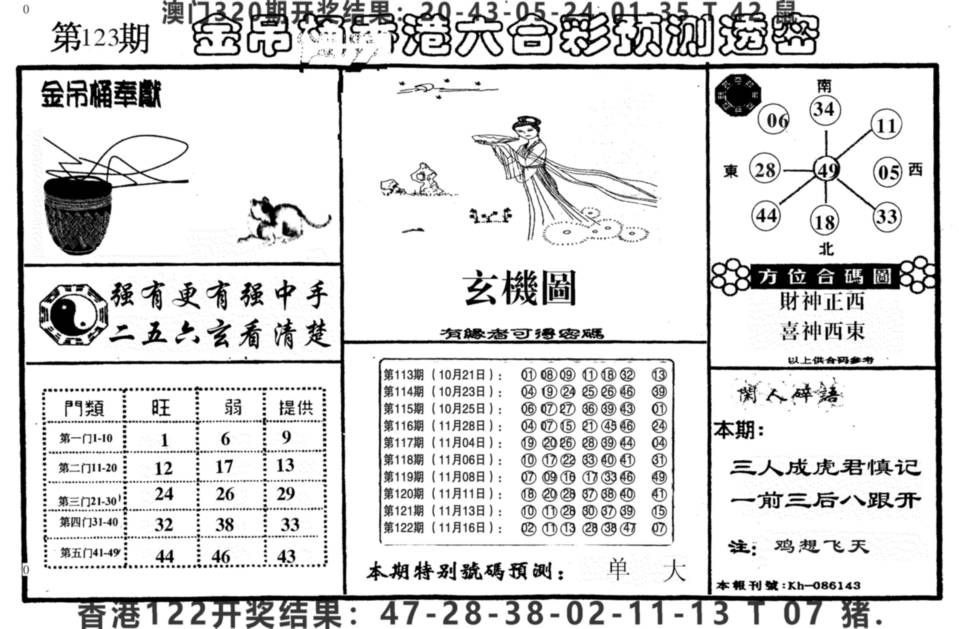 澳门320期开奖结果：20-43-05-24-01-35 T 42 鼠
第123期 金吊桶香港六合彩预测透密
金吊桶奉獻
强有更有强中手
二五六玄看清楚
門類 旺 弱 提供
第一门1-10 1 6 9
第二门11-20 12 17 13
第三门21-30 24 26 29
第四门31-40 32 38 33
第五门41-49 44 46 43
玄機圖
有緣者可得密碼
第113期（10月21日）：01 08 09 11 18 32 13
第114期（10月23日）：04 19 24 25 26 46 39
第115期（10月25日）：06 07 27 36 39 43 01
第116期（11月28日）：04 07 15 21 45 46 24
第117期（11月04日）：19 20 26 28 39 44 04
第118期（11月06日）：10 17 22 33 40 41 31
第119期（11月08日）：07 09 16 17 33 46 49
第120期（11月11日）：18 20 28 37 38 40 41
第121期（11月13日）：10 11 28 30 37 39 15
第122期（11月16日）：02 11 13 28 38 47 07
本期特别號碼預测： 单 大
南
34
06 11
東 28 49 05 西
44 18 33
北
方位合碼圖
財神正西
喜神西東
以上供合码参考
閑人碎語
本期：
三人成虎君慎记
一前三后八跟开
注：鸡想飞天
本報刊號:Kh-086143
香港122开奖结果：47-28-38-02-11-13 T 07 猪.
0
0